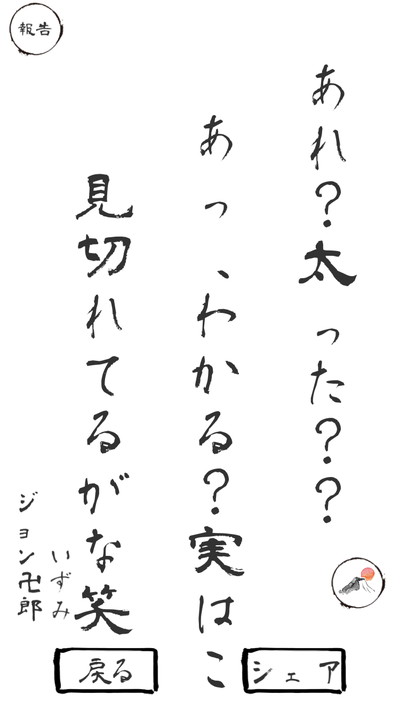 報告
あれ?太った??
あっ、わかる?実はこ
見切れてるがな笑
いずみ
ジョン卍郎
シェア
戻る